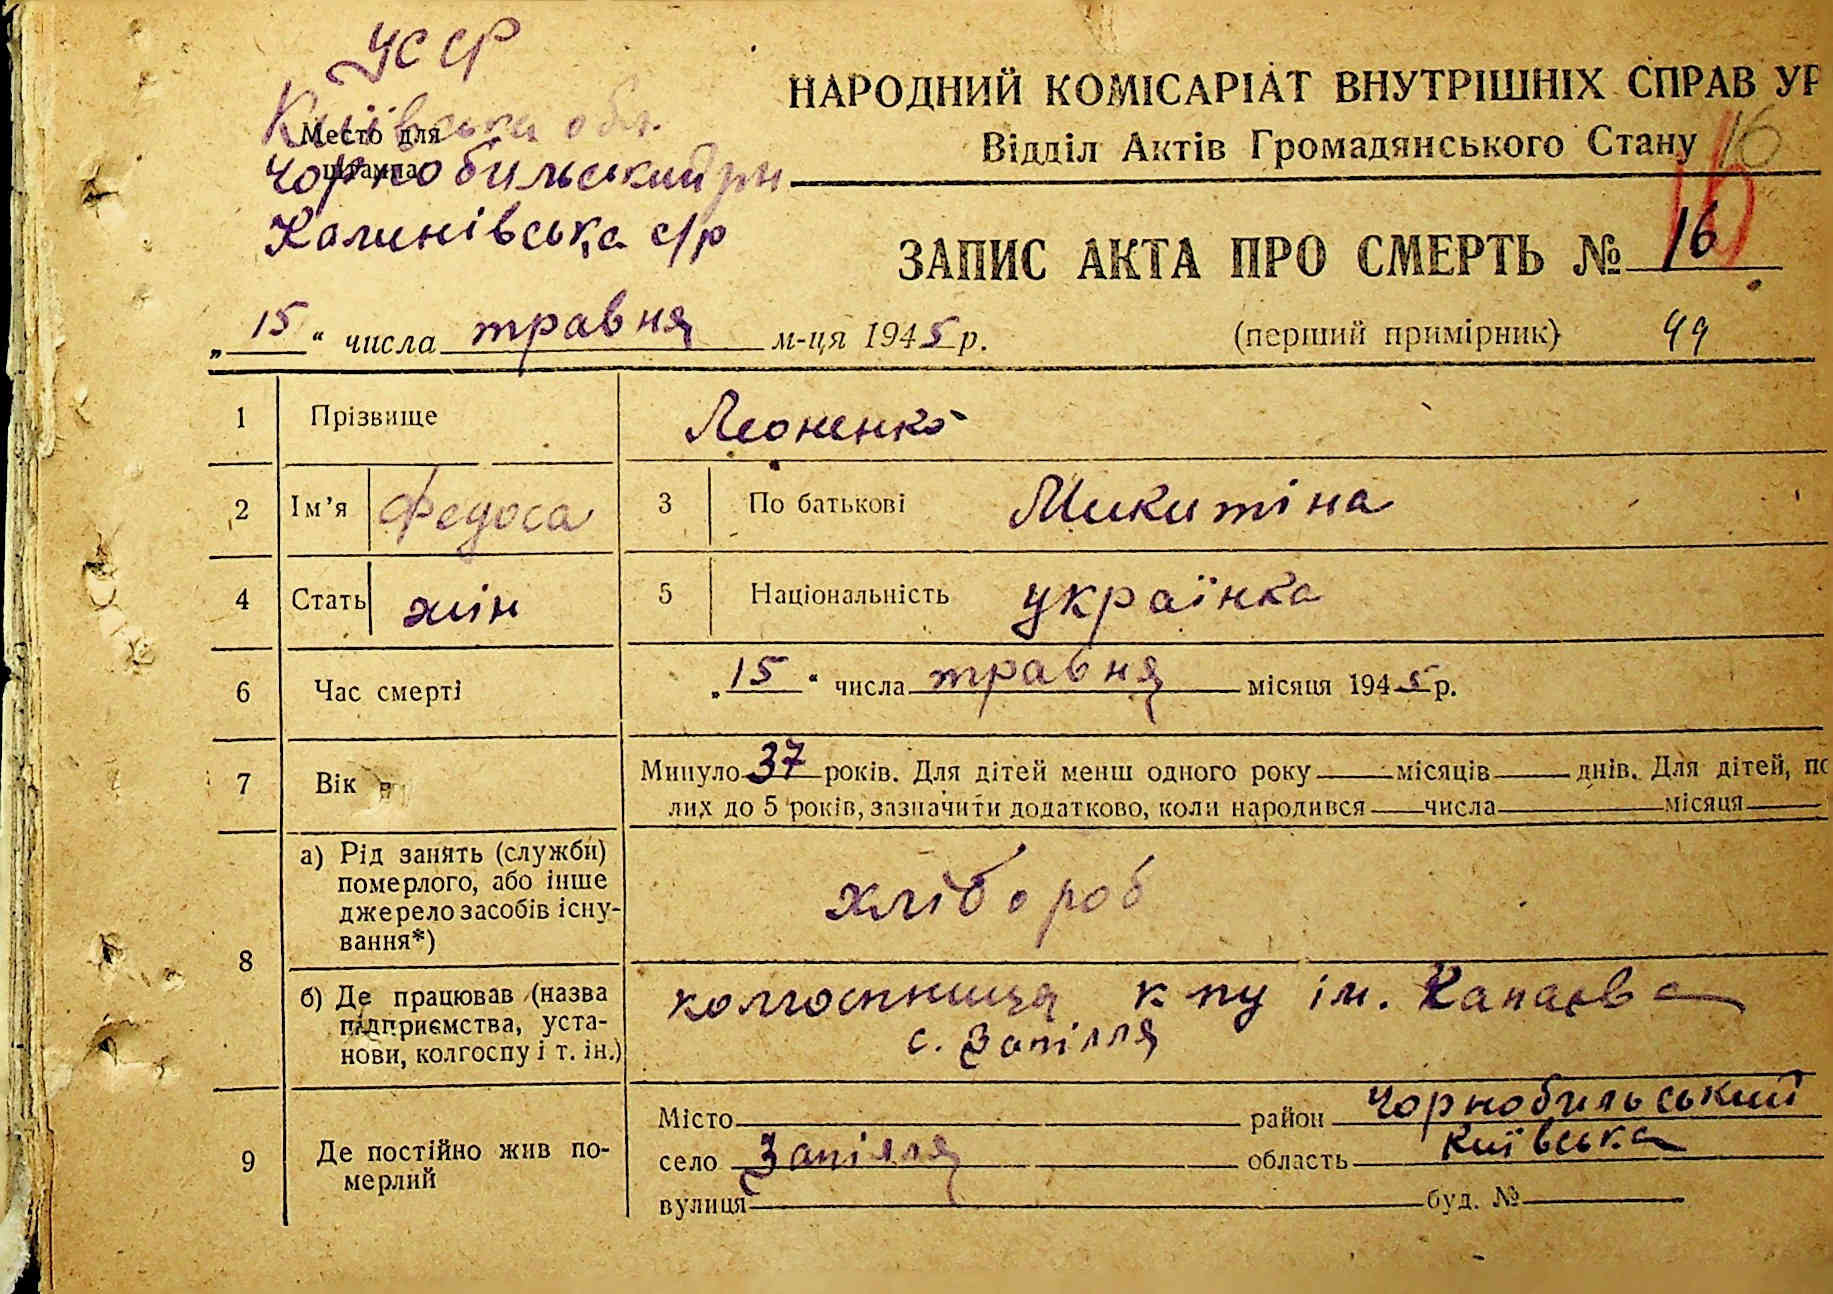 УССР
Київська обл.
Место для
штампа
Чорнобильський рн
Калинівська с/р
НАРОДНИЙ КОМІСАРІАТ ВНУТРІШНІХ СПРАВ УР
Відділ Актів Громадянського Стану 16
ЗАПИС АКТА ПРО СМЕРТЬ № 16
„15“ числа травня м-ця 1945 р.
(перший примірник) 49
1 Прізвище Леоненко
2 Ім’я Федоса 3 По батькові Микитіна
4 Стать жін 5 Національність українка
6 Час смерті „15“ числа травня місяця 1945 р.
7 Вік Минуло 37 років. Для дітей менш одного року місяців днів. Для дітей, по
лих до 5 років, зазначити додатково, коли народився числа місяця
8
а) Рід занять (служби)
померлого, або інше
джерело засобів існу-
вання*)
хлібороб
б) Де працював (назва
підприємства, уста-
нови, колгоспу і т. ін.)
колгоспниця к-пу ім. Капаєва
с. Запілля
9 Де постійно жив по-
мерлий
Місто район Чорнобильський
село Запілля область Київська
вулиця буд. №